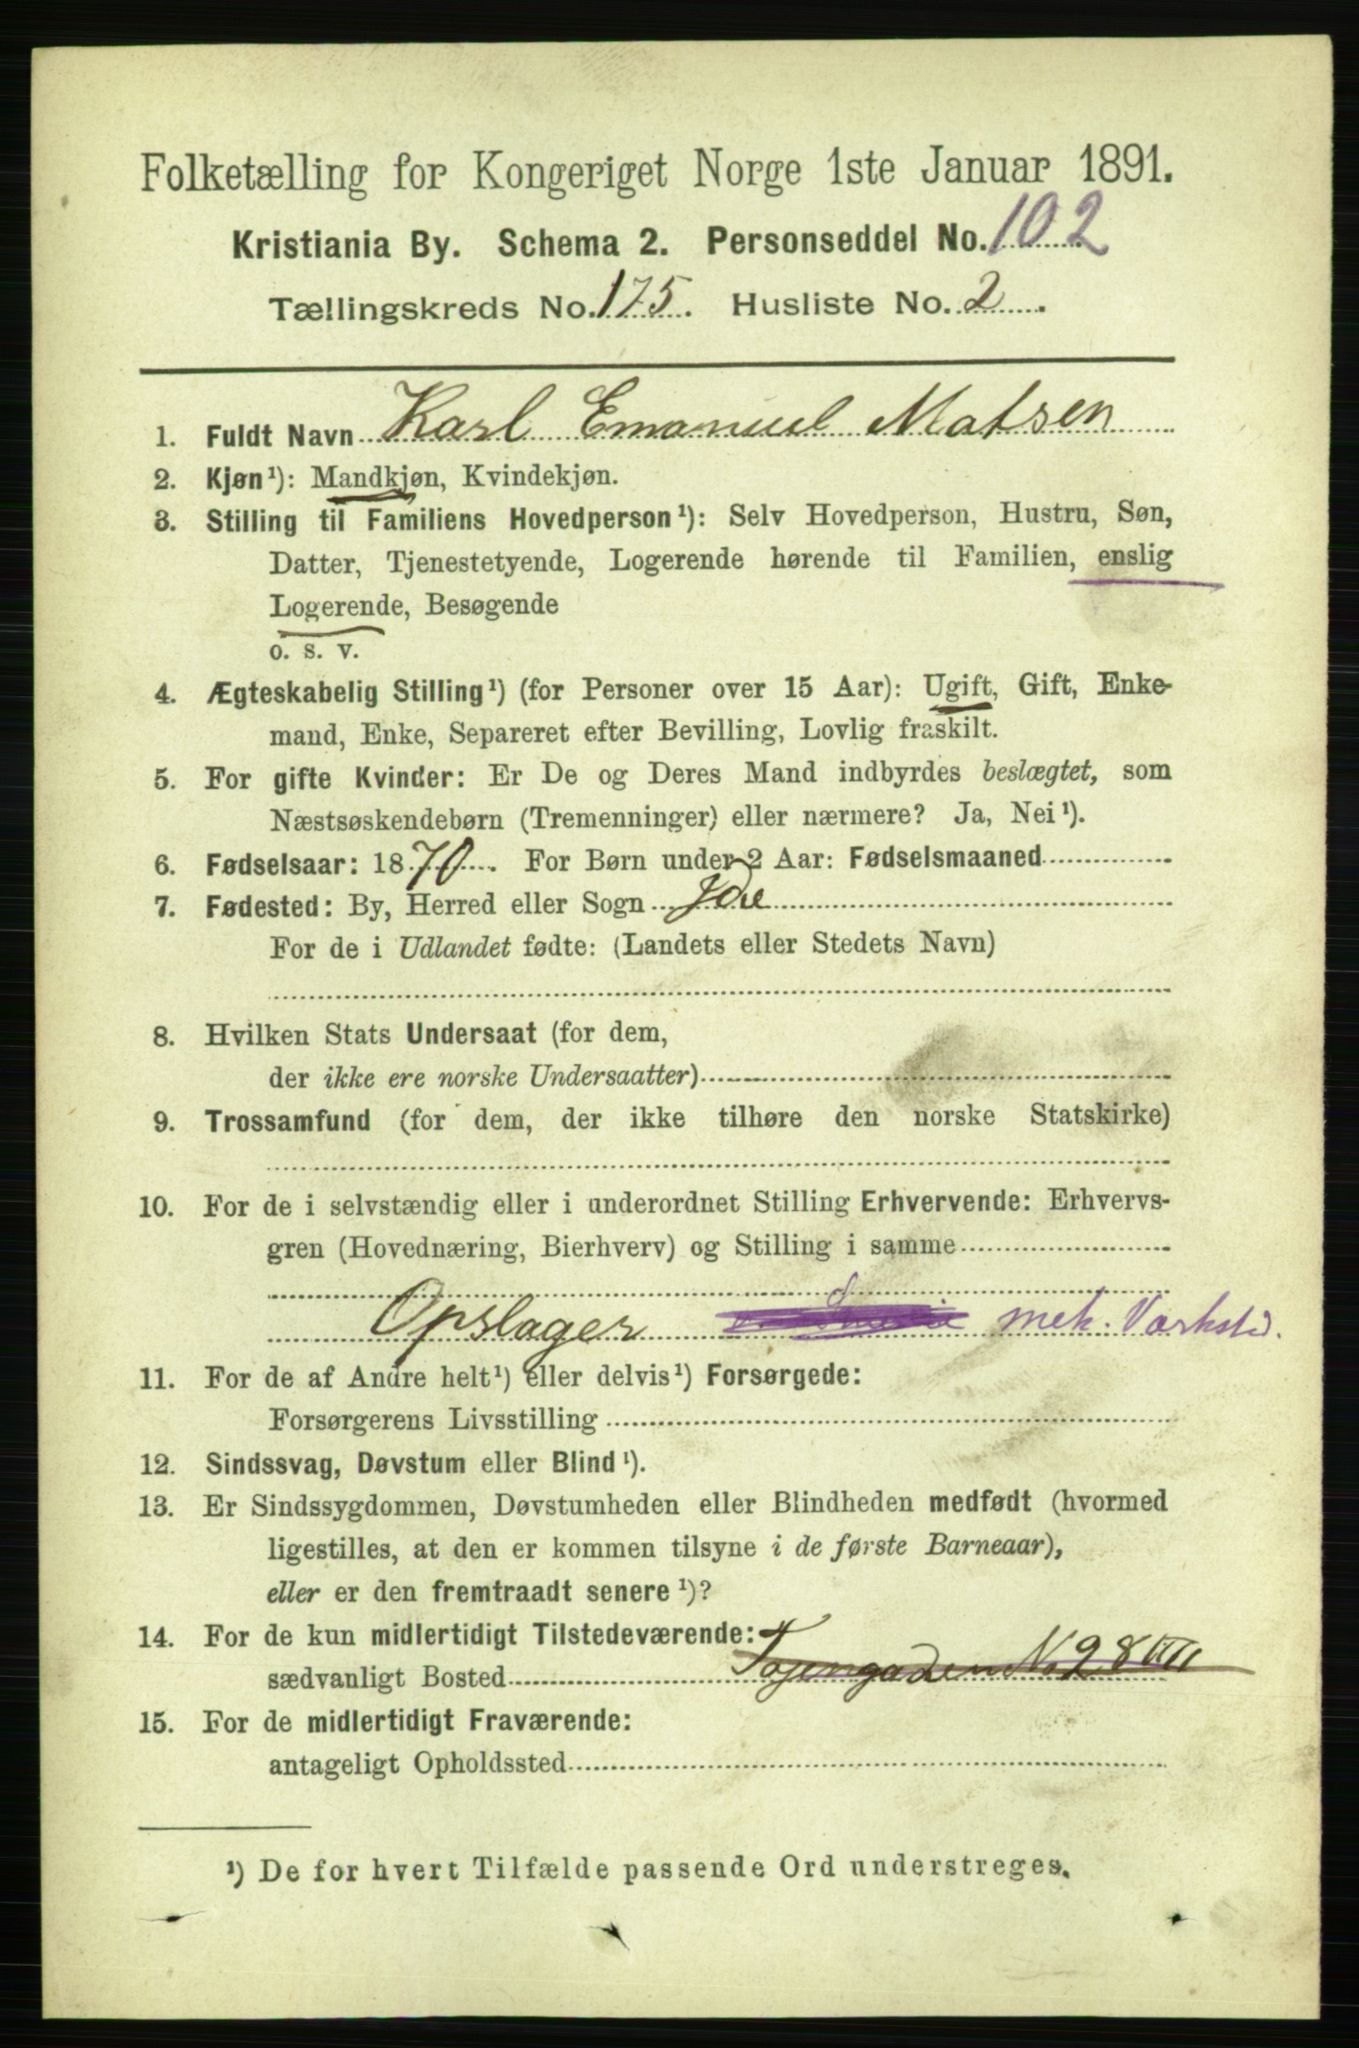 Folketælling for Kongeriget Norge 1ste Januar 1891.
Kristiania By. Schema 2. Personseddel No. 102
Tællingskreds No. 175. Husliste No. 2.
1. Fuldt Navn Karl Emanuel Matsen
2. Kjøn¹): Mandkjøn, Kvindekjøn.
3. Stilling til Familiens Hovedperson¹): Selv Hovedperson, Hustru, Søn,
Datter, Tjenestetyende, Logerende hørende til Familien, enslig
Logerende, Besøgende
o. s. v.
4. Ægteskabelig Stilling¹) (for Personer over 15 Aar): Ugift, Gift, Enke-
mand, Enke, Separeret efter Bevilling, Lovlig fraskilt.
5. For gifte Kvinder: Er De og Deres Mand indbyrdes beslægtet, som
Næstsøskendebørn (Tremenninger) eller nærmere? Ja, Nei¹).
6. Fødselsaar: 1870. For Børn under 2 Aar: Fødselsmaaned
7. Fødested: By, Herred eller Sogn Ide
For de i Udlandet fødte: (Landets eller Stedets Navn)
8. Hvilken Stats Undersaat (for dem,
der ikke ere norske Undersaatter)
9. Trossamfund (for dem, der ikke tilhøre den norske Statskirke)
10. For de i selvstændig eller i underordnet Stilling Erhvervende: Erhvervs-
gren (Hovednæring, Bierhverv) og Stilling i samme
Opslager mek. Værksted.
11. For de af Andre helt¹) eller delvis¹) Forsørgede:
Forsørgerens Livsstilling
12. Sindssvag, Døvstum eller Blind¹).
13. Er Sindssygdommen, Døvstumheden eller Blindheden medfødt (hvormed
ligestilles, at den er kommen tilsyne i de første Barneaar),
eller er den fremtraadt senere¹)?
14. For de kun midlertidigt Tilstedeværende:
sædvanligt Bosted Tøjengaden No 28 III
15. For de midlertidigt Fraværende:
antageligt Opholdssted
¹) De for hvert Tilfælde passende Ord understreges.